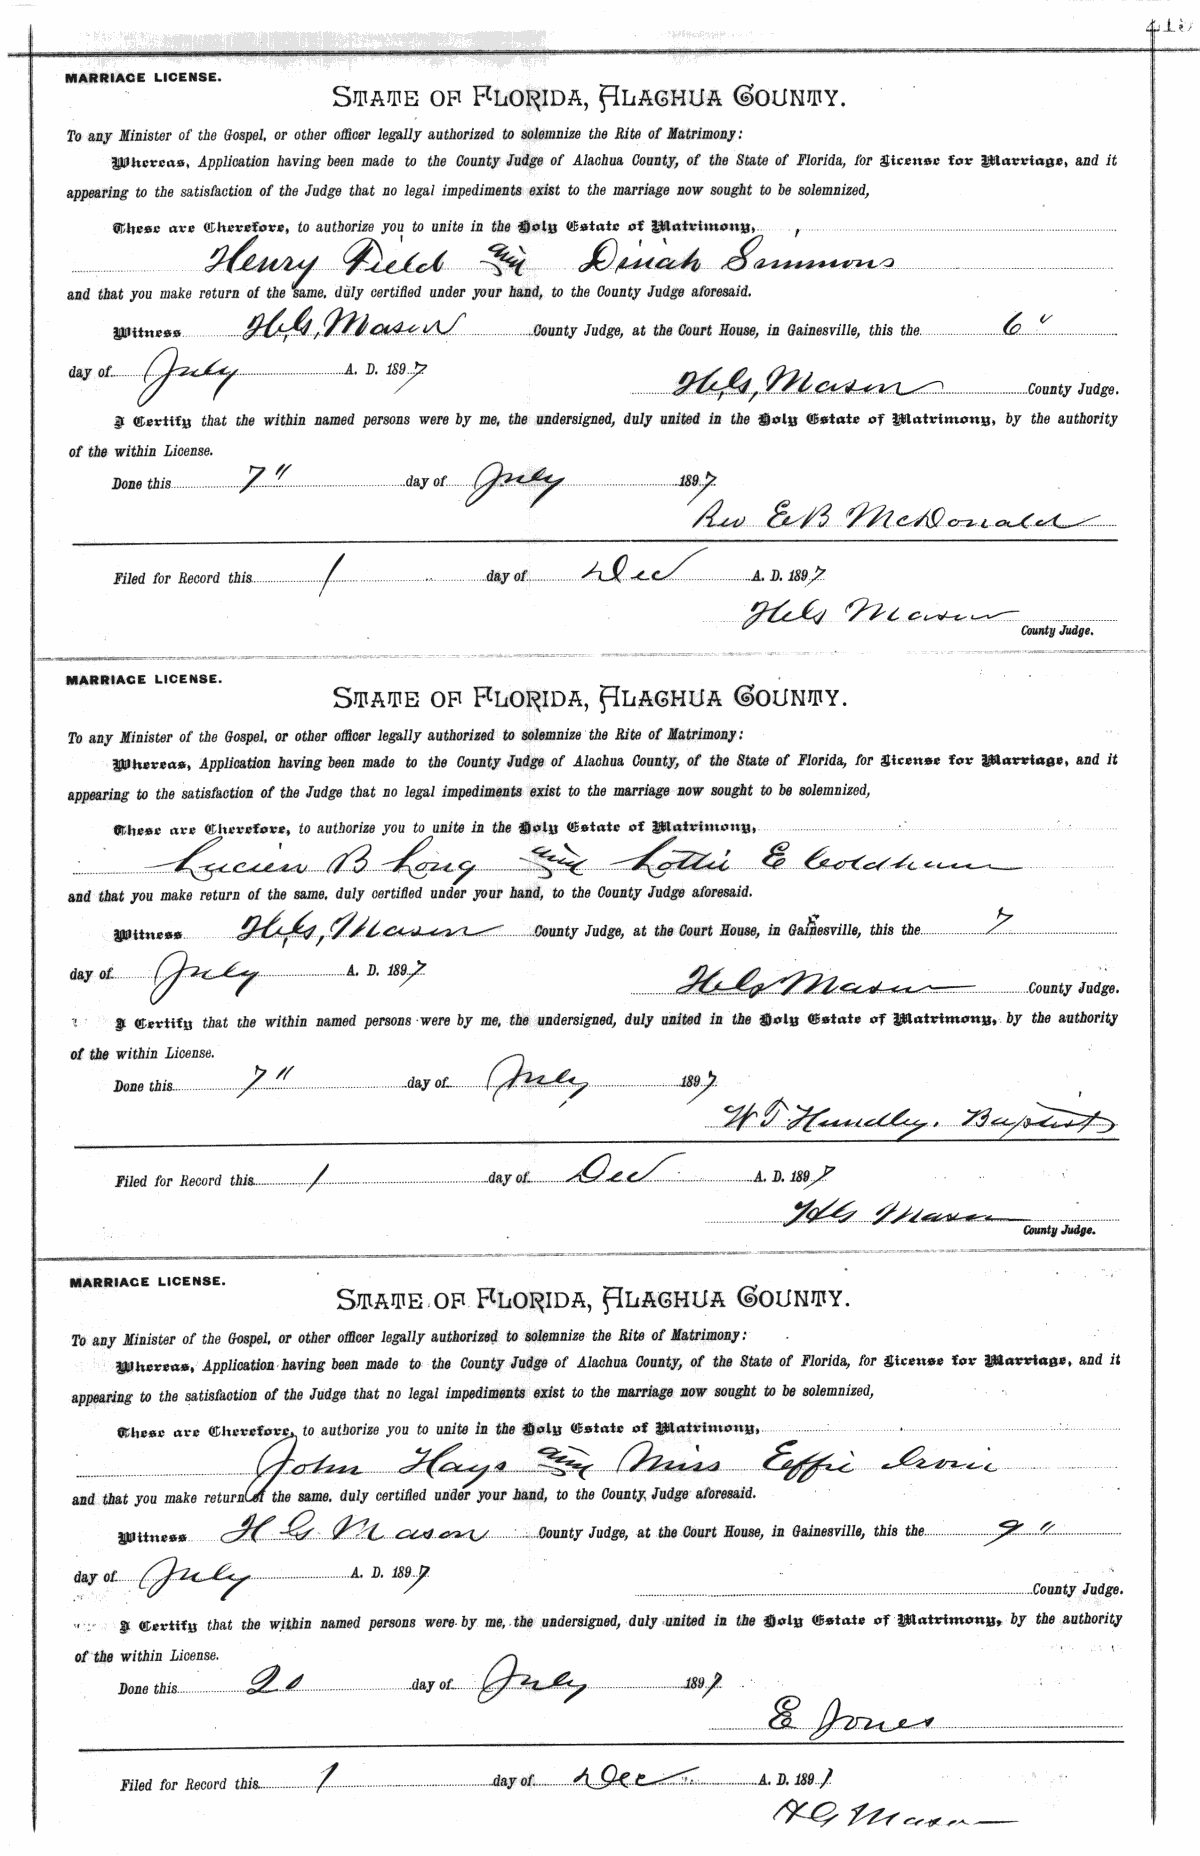 MARRIAGE LICENSE.
STATE OF FLORIDA, ALACHUA COUNTY.
To any Minister of the Gospel, or other officer legally authorized to solemnize the Rite of Matrimony:
Whereas, Application having been made to the County Judge of Alachua County, of the State of Florida, for License for Marriage, and it
appearing to the satisfaction of the Judge that no legal impediments exist to the marriage now sought to be solemnized,
These are Therefore, to authorize you to unite in the Holy Estate of Matrimony,
Henry Field and Dinah Simmons
and that you make return of the same, duly certified under your hand, to the County Judge aforesaid.
Witness H. G. Mason County Judge, at the Court House, in Gainesville, this the 6"
day of July A. D. 1897
H. G. Mason County Judge.
I Certify that the within named persons were by me, the undersigned, duly united in the Holy Estate of Matrimony, by the authority
of the within License.
Done this 7" day of July 1897
Rev E B McDonald
Filed for Record this 1 day of Dec A. D. 1897
H G Mason
County Judge.
MARRIAGE LICENSE.
STATE OF FLORIDA, ALACHUA COUNTY.
To any Minister of the Gospel, or other officer legally authorized to solemnize the Rite of Matrimony:
Whereas, Application having been made to the County Judge of Alachua County, of the State of Florida, for License for Marriage, and it
appearing to the satisfaction of the Judge that no legal impediments exist to the marriage now sought to be solemnized,
These are Therefore, to authorize you to unite in the Holy Estate of Matrimony,
Lucien B Long and Lottie E Coldham
and that you make return of the same, duly certified under your hand, to the County Judge aforesaid.
Witness H. G. Mason County Judge, at the Court House, in Gainesville, this the 7
day of July A. D. 1897
H G Mason County Judge.
I Certify that the within named persons were by me, the undersigned, duly united in the Holy Estate of Matrimony, by the authority
of the within License.
Done this 7" day of July 1897
W T Hundley. Baptist
Filed for Record this 1 day of Dec A. D. 1897
H G Mason
County Judge.
MARRIAGE LICENSE.
STATE OF FLORIDA, ALACHUA COUNTY.
To any Minister of the Gospel, or other officer legally authorized to solemnize the Rite of Matrimony:
Whereas, Application having been made to the County Judge of Alachua County, of the State of Florida, for License for Marriage, and it
appearing to the satisfaction of the Judge that no legal impediments exist to the marriage now sought to be solemnized,
These are Therefore, to authorize you to unite in the Holy Estate of Matrimony,
John Hays and Miss Effie
and that you make return of the same, duly certified under your hand, to the County Judge aforesaid.
Witness H G Mason County Judge, at the Court House, in Gainesville, this the 9"
day of July A. D. 1897
County Judge.
I Certify that the within named persons were by me, the undersigned, duly united in the Holy Estate of Matrimony, by the authority
of the within License.
Done this 20 day of July 1897
E Jones
Filed for Record this 1 day of Dec A. D. 1897
H G Mason